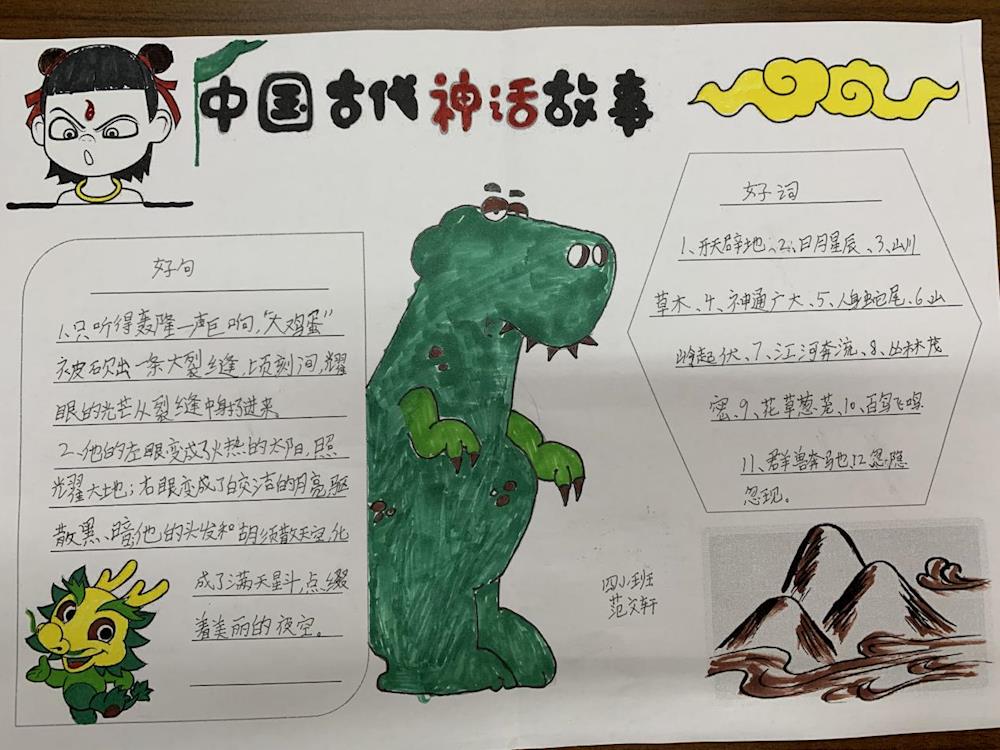 中国古代神话故事
好句
1、只听得轰隆一声巨响，“大鸡蛋”
被砍出一条大裂缝，顷刻间，耀
眼的光芒从裂缝中身了进来
2、他的左眼变成了火热的太阳，照
光耀大地；右眼变成了皎洁的月亮驱
散黑、暗他的头发和胡须散天空，化
成了满天星斗，点缀
着美丽的夜空。
好词
1、开天辟地、2、日月星辰、3、山川
草木、4、神通广大、5、人身蛇尾、6、山
峦起伏、7、江河奔流、8、丛林茂
密、9、花草葱茏、10、百鸟飞鸣
11、群兽奔马也、12、忽隐
忽现。
范文轩